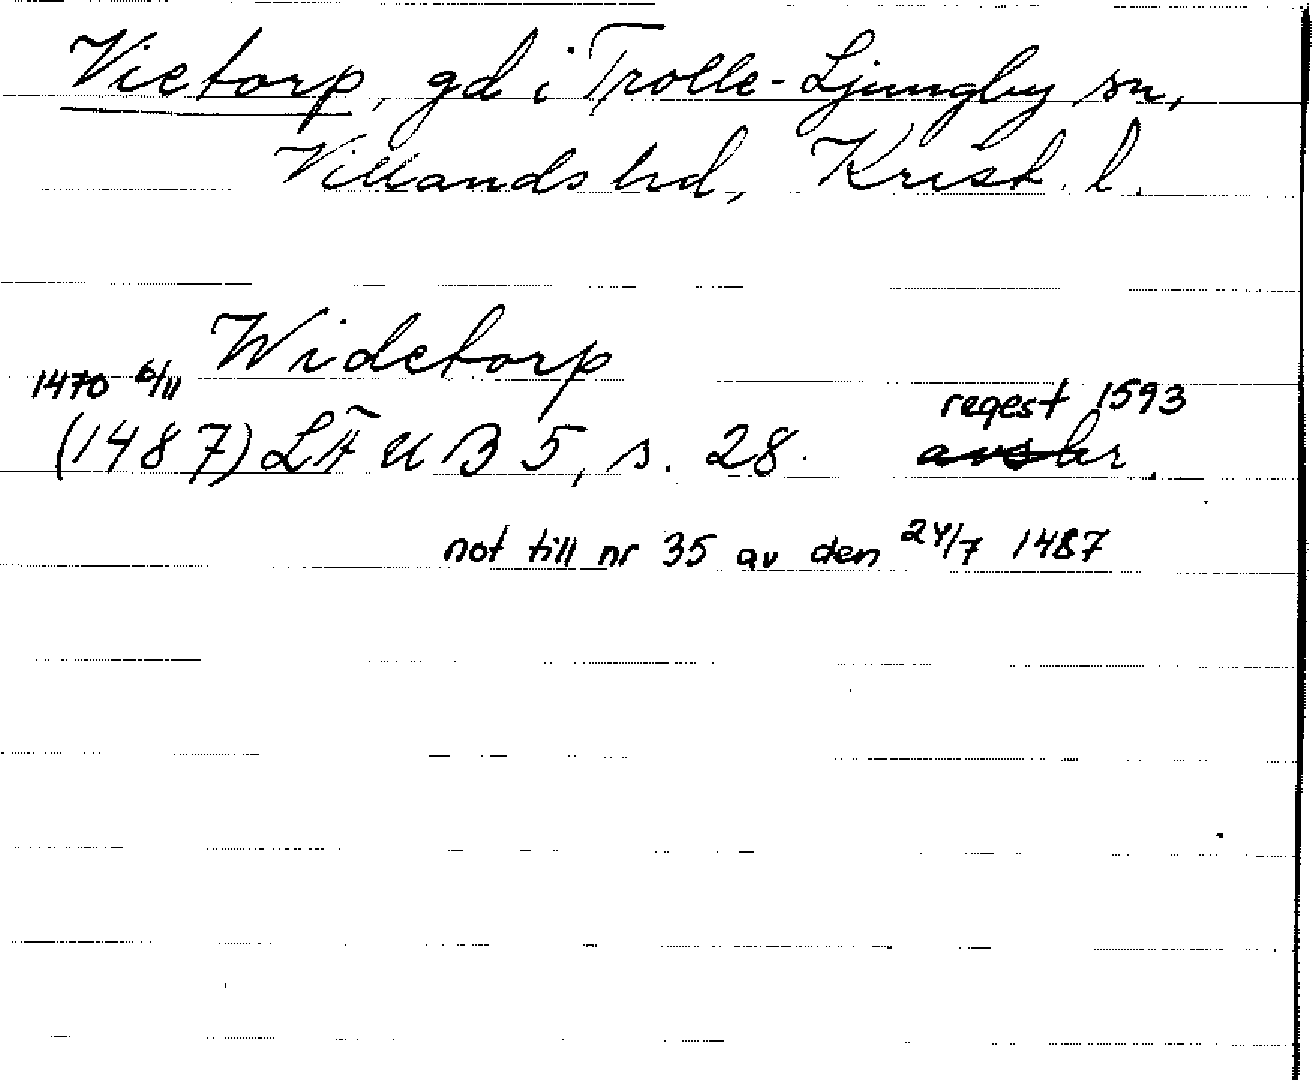 Vietorp, gd i Trolle-Ljungby sn,
Villands hd, Krist. l.
Widetorp
1470 6/11
regest 1593
(1487) LÄUB 5, s. 28.
not till nr 35 av den 24/7 1487